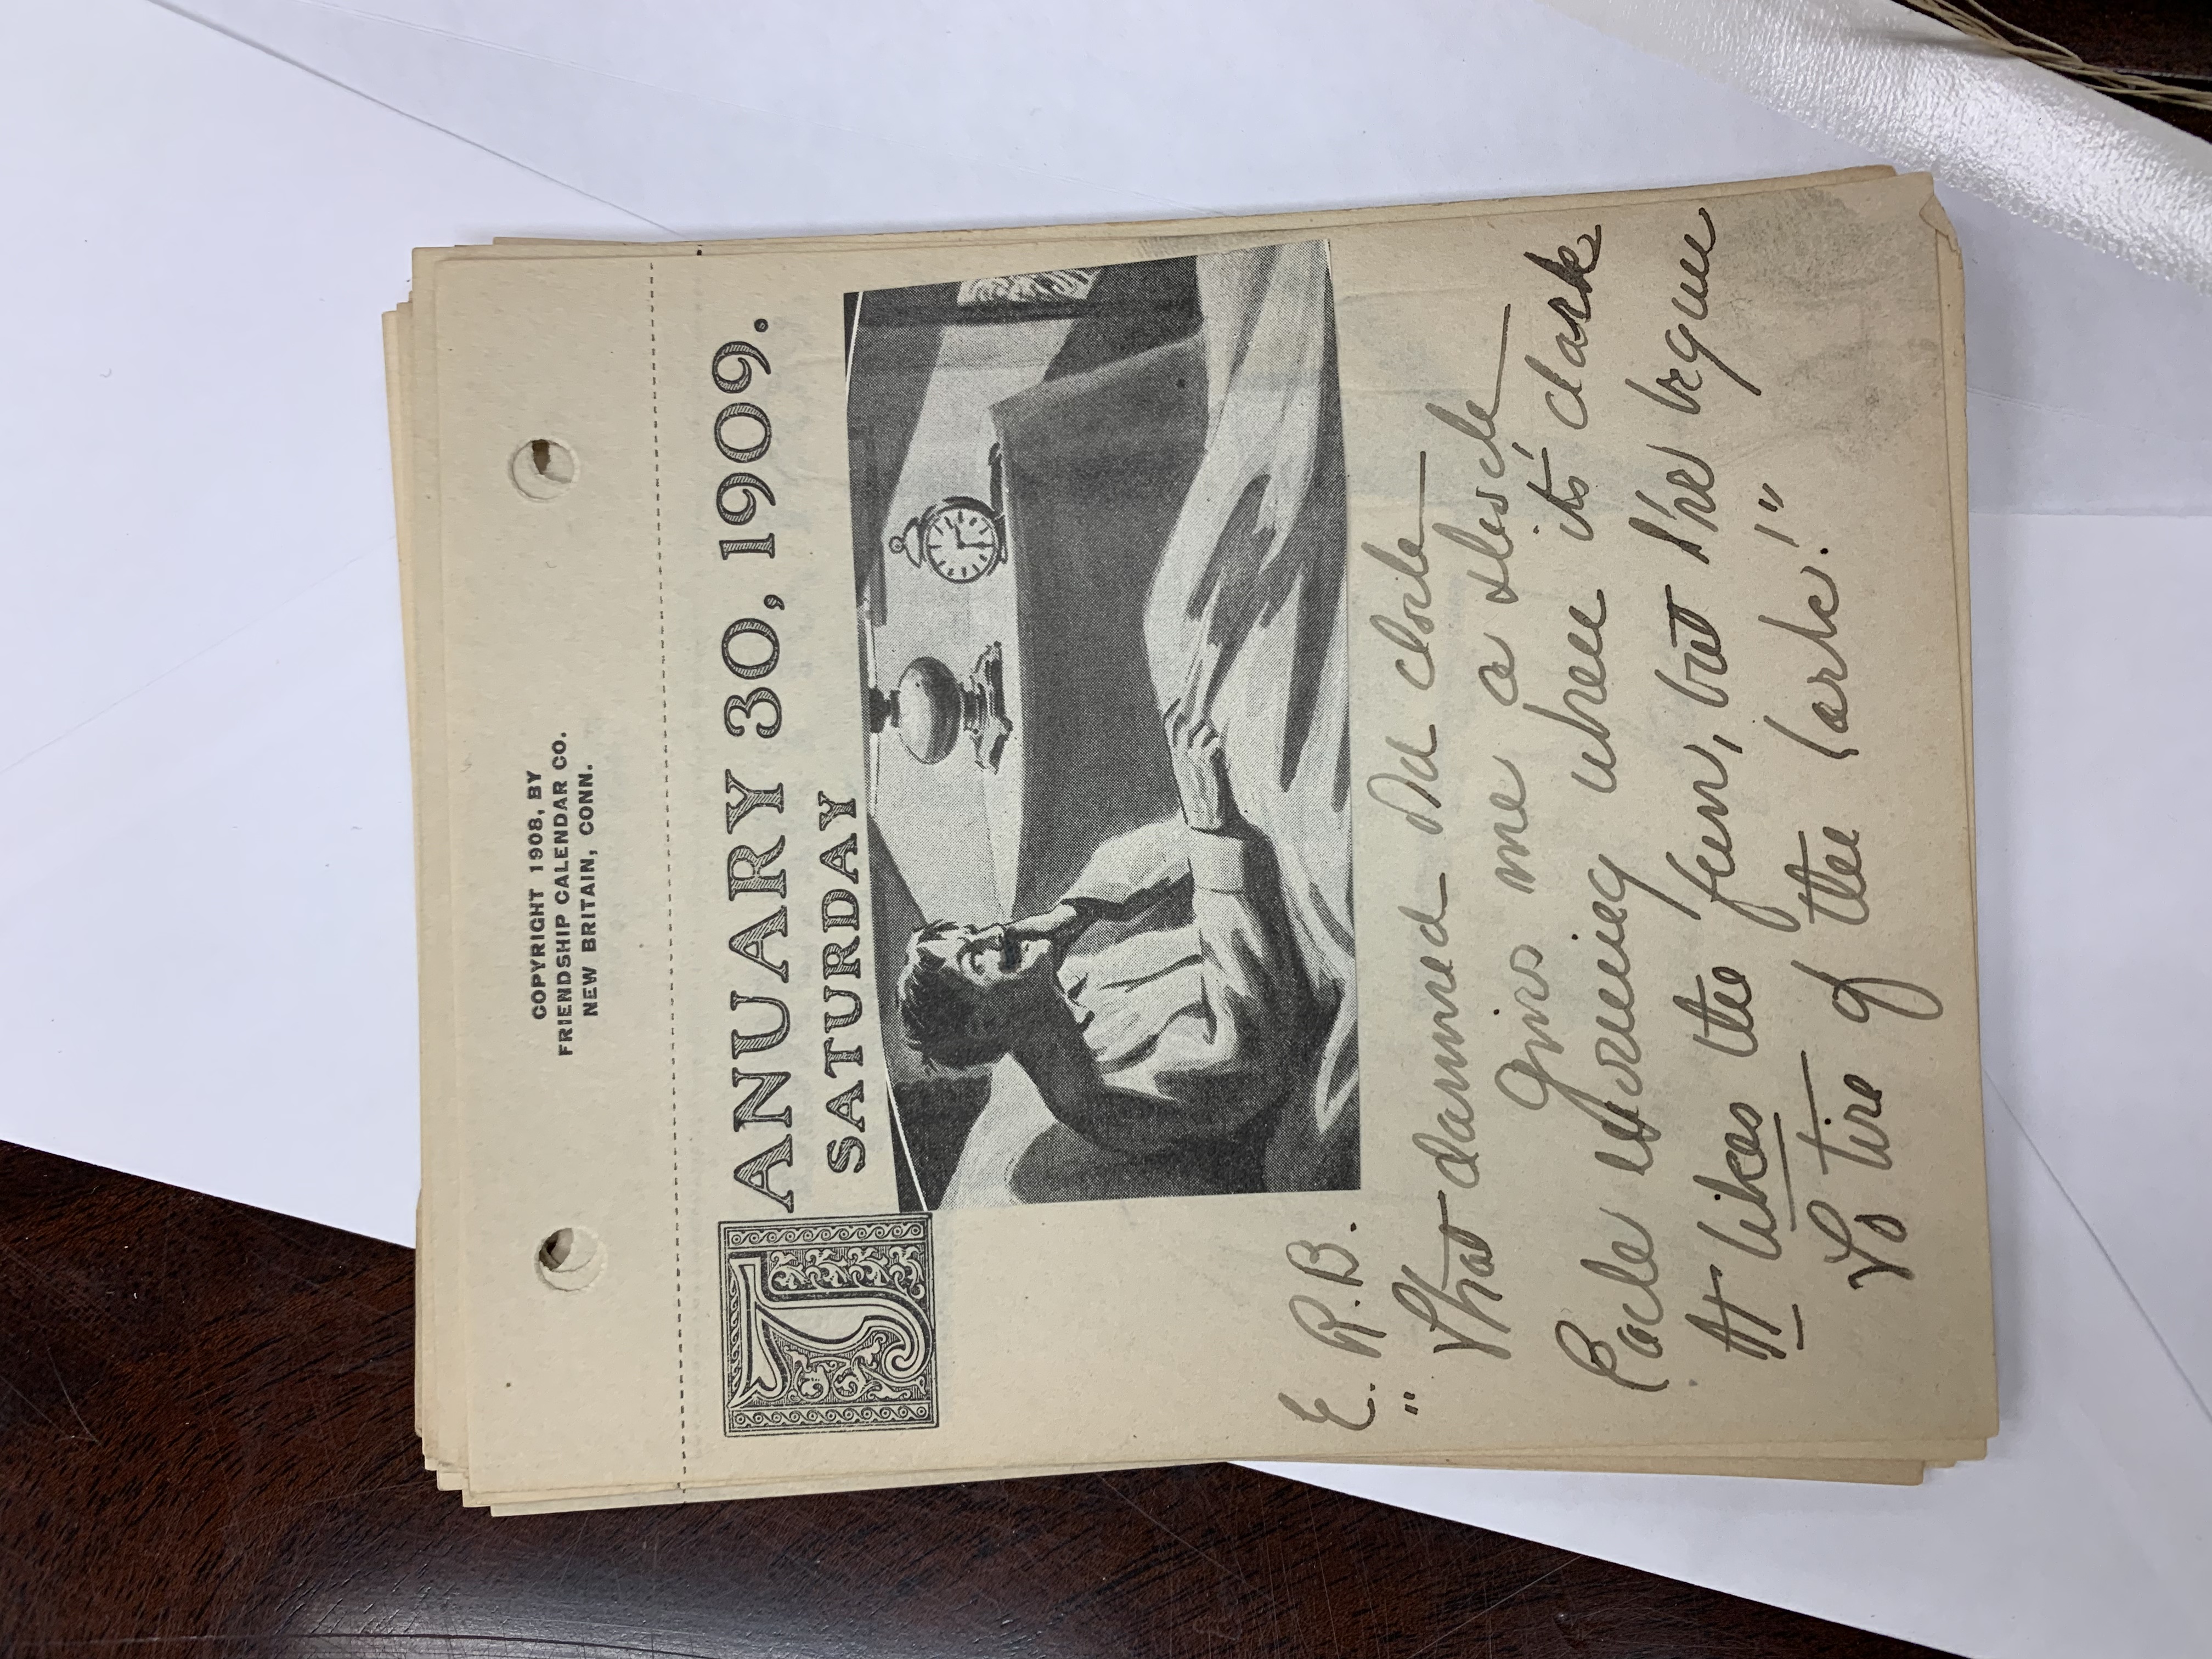 COPYRIGHT 1908, BY
FRIENDSHIP CALENDAR CO.
NEW BRITAIN, CONN.
JANUARY 30, 1909.
SATURDAY
E. R. B.
"That damned old clock
Gives me a shock
Each morning when it's dark
It likes the fun, but I've begun
To tire of the lark!"